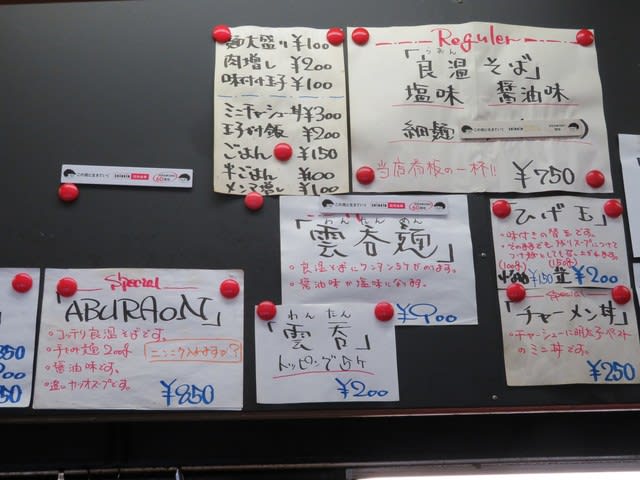 麺大盛り ¥100
肉増し ¥200
味付け玉子 ¥100
ミニチャーシュー丼 ¥300
玉子かけ飯 ¥200
ごはん ¥150
半ごはん ¥100
メンマ増し ¥100
Reguler
らおん
「良温そば」
塩味 醤油味
細麺
当店看板の一杯!!
¥750
わんたんめん
「雲呑麺」
・良温そばにワンタン5ケがのります。
・醤油味か塩味になります。
¥900
「ひげ玉」
・味付きの替玉です。
(100g) (150g)
¥150 並 ¥200
Special
「ABURAON」
・コッテリ良温そばです。
・手もみ麺200g
ニンニク入れますか?
・醤油味です。
・追いカツオスープです。
¥850
わんたん
「雲呑」
トッピングで5ケ
¥200
Special
「チャーメン丼」
・チャーシューに明太子ペースト
のミニ丼です。
¥250
850
900
850